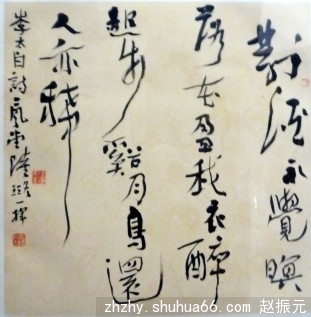 對酒不覺暝
落花盈我衣醉
起步谿月鳥還
人亦稀
李太白詩
zhzhy.shuhua66.com 赵振元